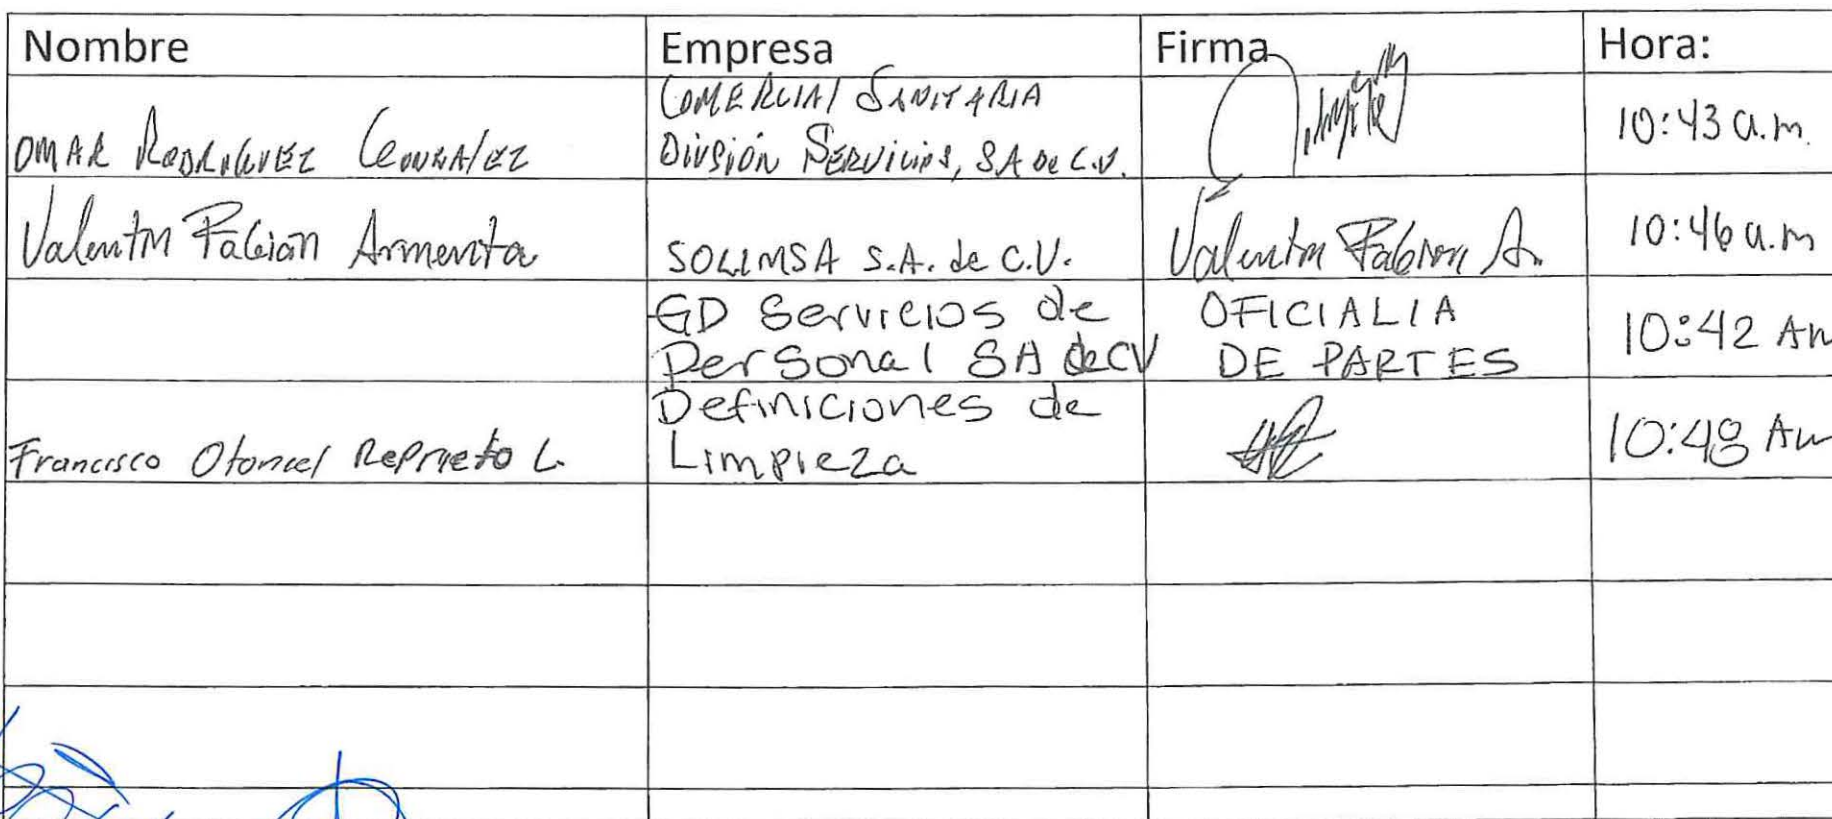 Nombre Empresa Firma Hora:
OMAR RODRIGUEZ GONZALEZ COMERCIAL SANITARIA División SERVICIOS, SA DE C.V. 10:43 a.m.
Valentin Fabian Armenta SOLIMSA S.A. de C.V. Valentin Fabian A. 10:46 a.m
GD Servicios de Personal SA de CV OFICIALIA DE PARTES 10:42 AM
Francisco Otoniel L. Definiciones de Limpieza 10:48 AM